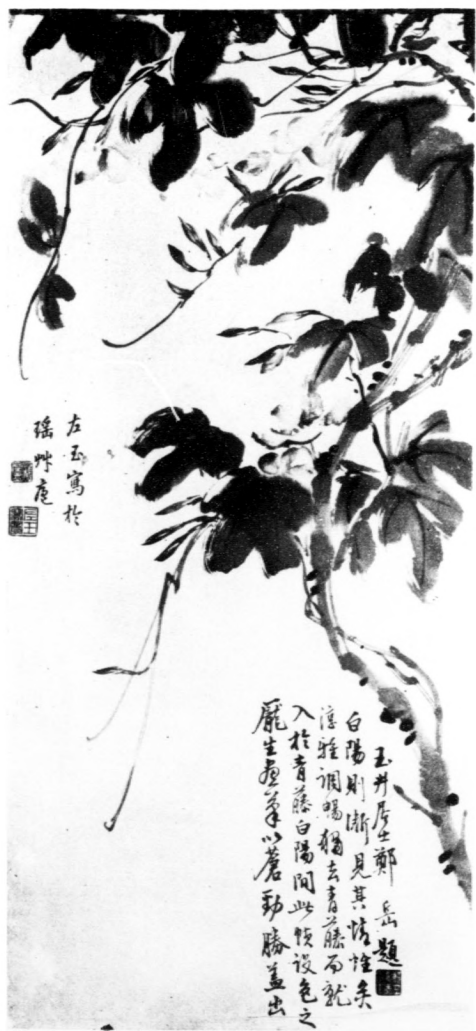 左玉寫於
瑤艸庵
龐生畫筆以蒼勁勝蓋出
入於青藤白陽間此幀設色之
淳雅調暢獨去青藤而就
白陽則漸見其情性矣
玉井居士鄭岳題